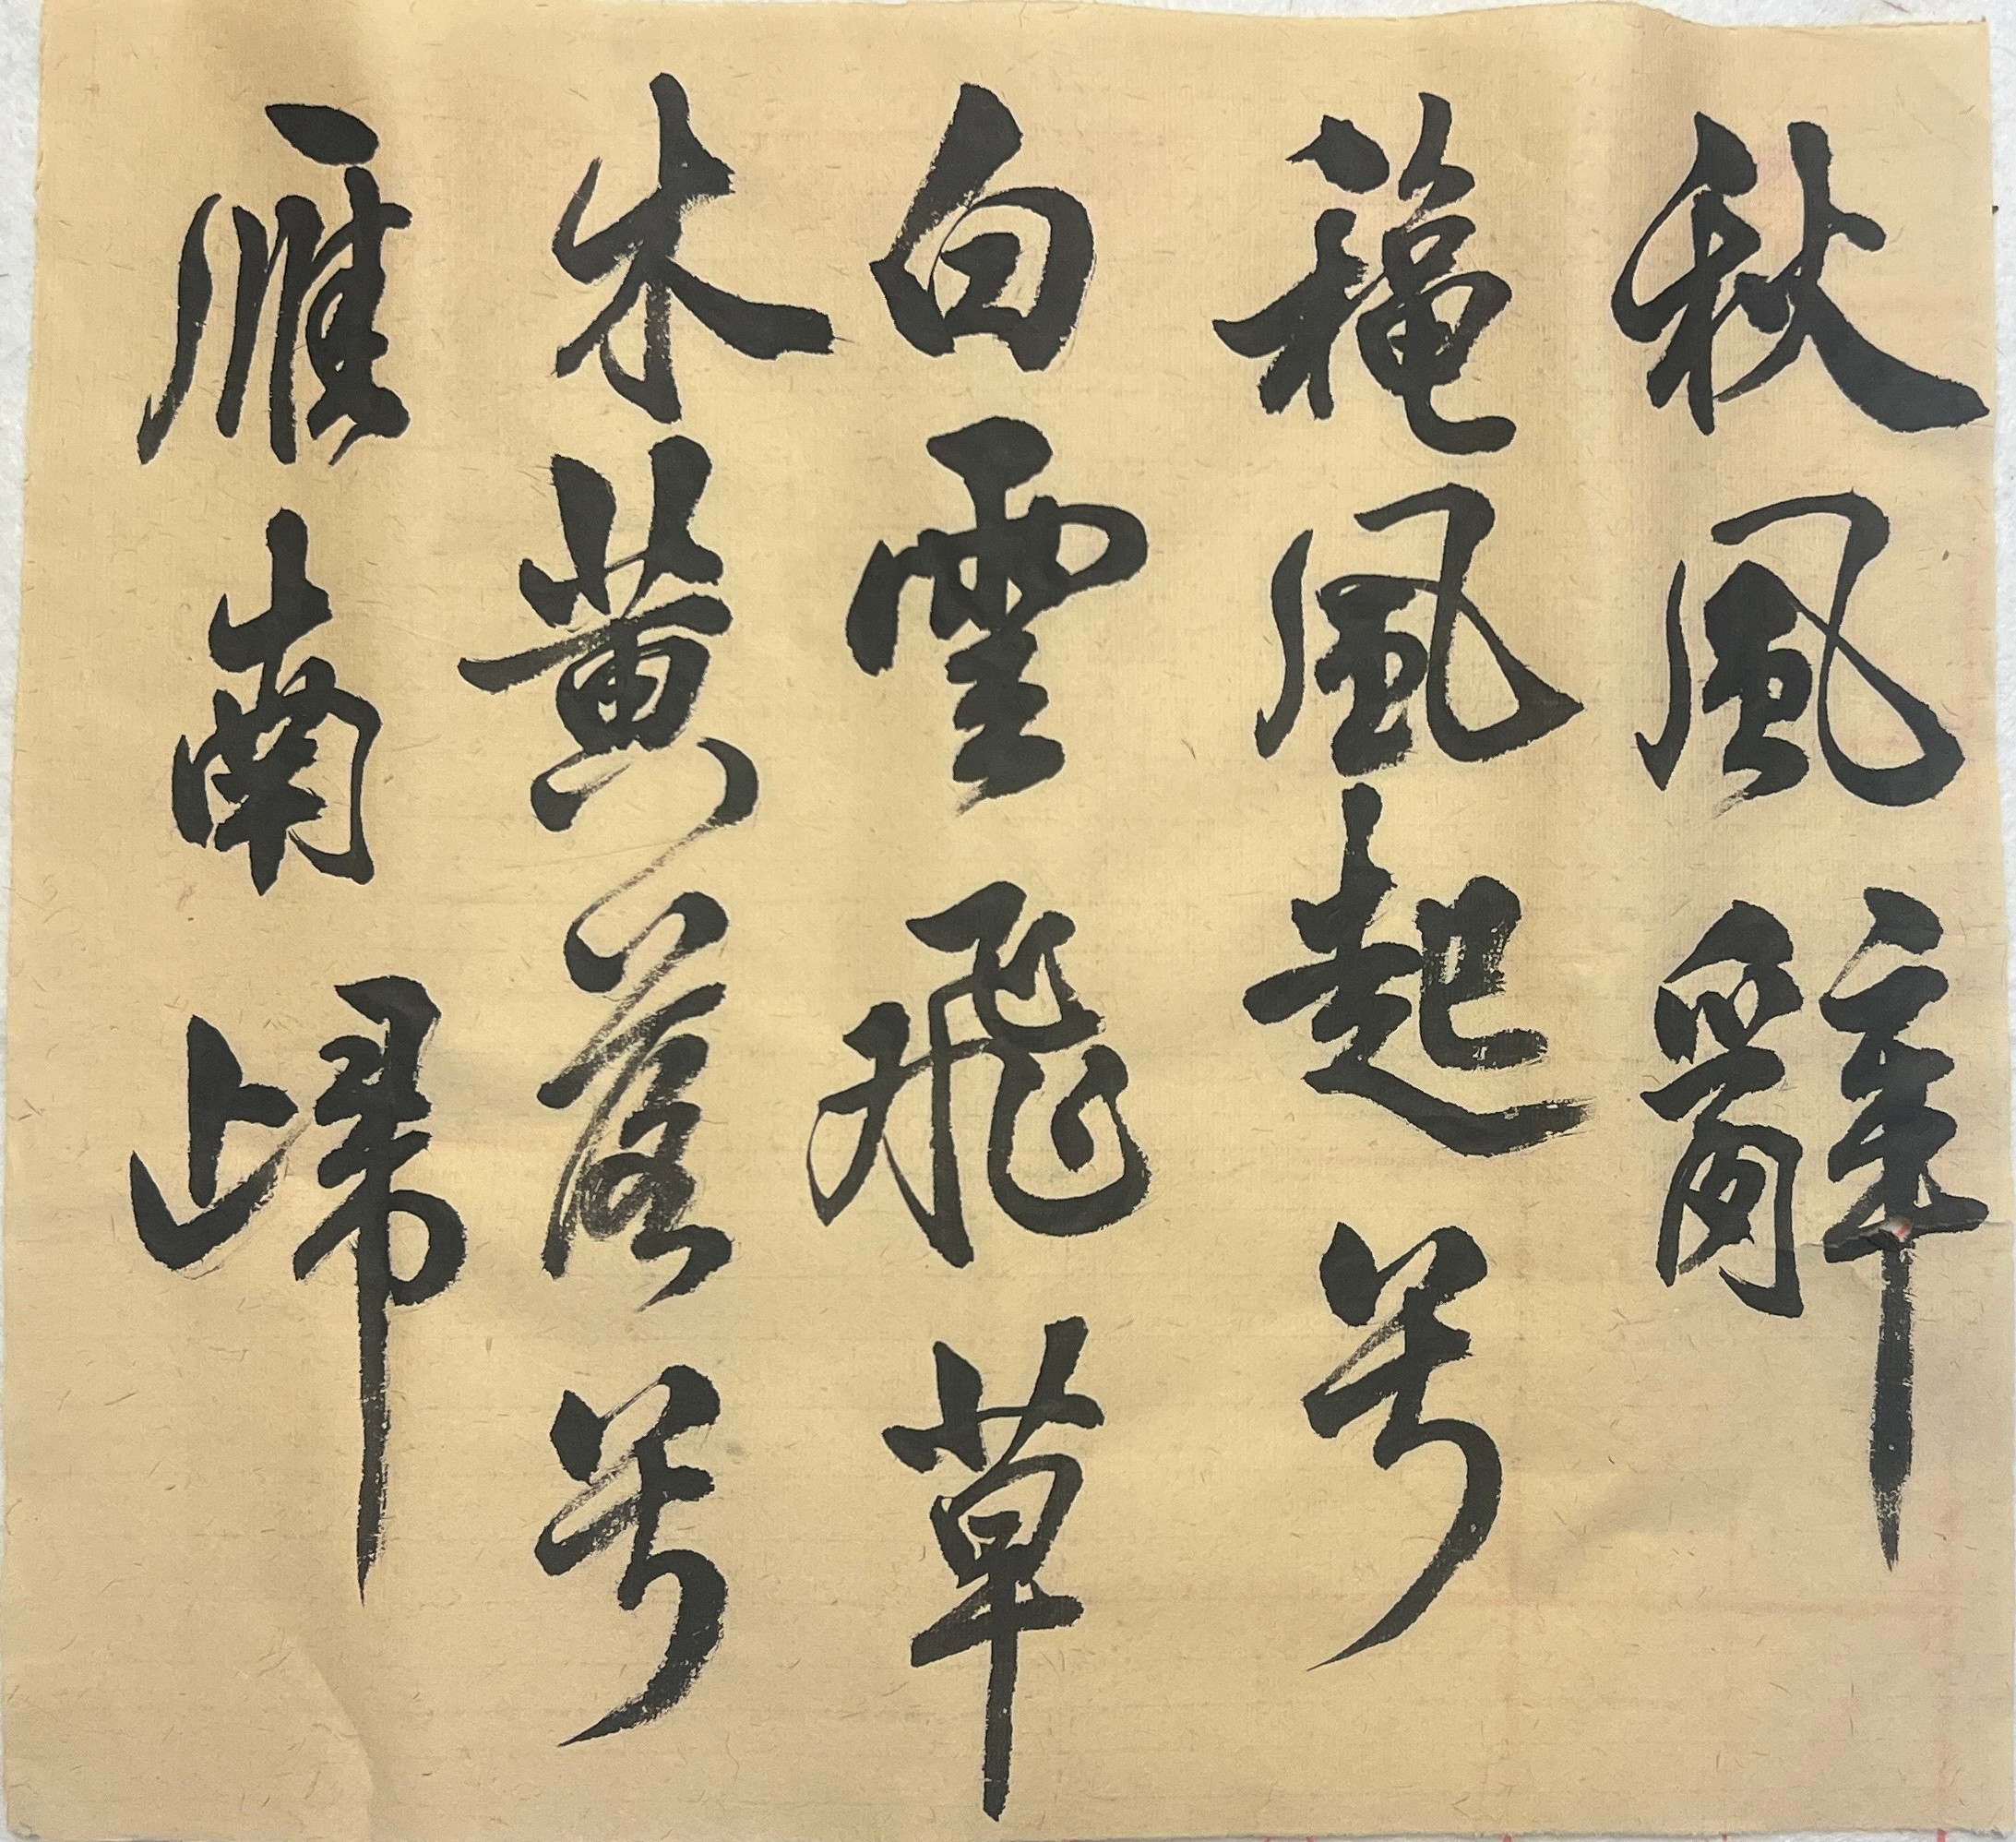 秋風辭
穐風起兮
白雲飛草
木黃落兮
雁南歸